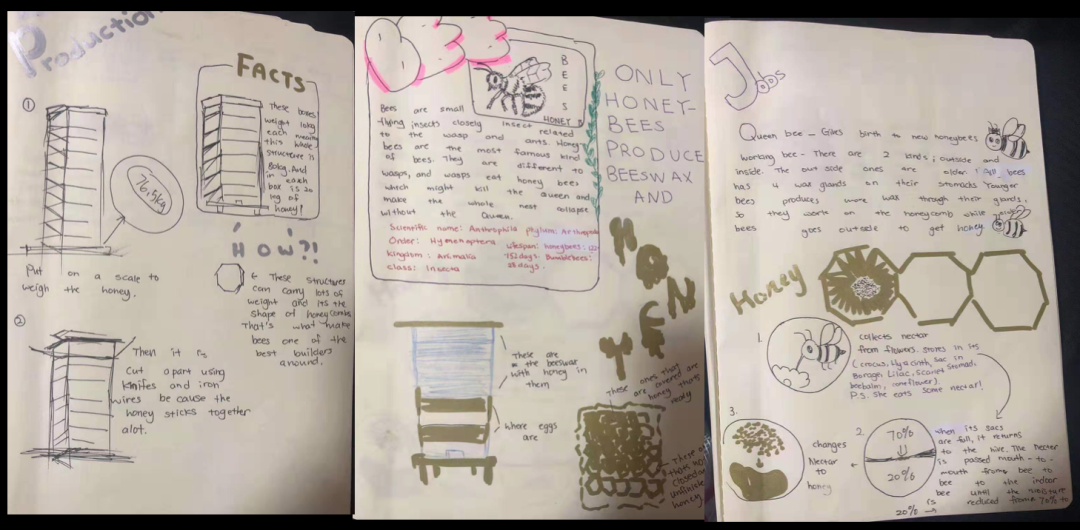 Production
FACTS
①
These boxes
weight long
each meaning
this whole
structure is
80kg. And
in each
box is 20
kg of
honey!
76.5kg
HOW?!
Put on a scale to
weigh the honey.
← These structures
can carry lots of
weight and its the
shape of honeycombs
That's what make
bees one of the
best builders
around.
②
Then it is
Cut apart using
knifes and iron
wires be cause the
honey sticks together
alot.
Bee
B
E
E
S
HONEY
Bees are small
flying insects closely insect related
to the wasp and ants. Honey
bees are the most famous kind
of bees. They are different to
wasps, and wasps eat honey bees
which might kill the queen and
make the whole nest collapse
without the Queen.
Scientific name: Anthophila phylum: Arthropoda
Order: Hymenoptera lifespan: honeybees: 122-
kingdom: Animalia 152 days. Bumblebees:
class: Insecta 28 days.
ONLY
HONEY-
BEES
PRODUCE
BEESWAX
AND
HONEY
These are
the beeswax
with honey in
them
Where eggs
are
These ones that
are covered are
honey thats
ready
These
thats not
closed are
unfinished
honey
Jobs
Queen bee - Gives birth to new honeybees
working bee - There are 2 kinds; outside and
inside. The out side ones are older. All bees
has 4 wax glands on their stomacks Younger
bees produces more wax through their glands,
so they work on the honeycomb while
bees goes outside to get honey
Honey
1.
collects nectar
from flowers. stores in its
(crocus, Hyacinth, sac in
Borage, Lilac, Scarlet stomach.
beebalm, coneflower).
P.S. She eats some nectar!
3.
changes
Nectar
to
honey
2.
70%
20%
when its sacs
are full, it returns
to the hive. The Nectar
is passed mouth-to-
mouth from bee to
bee to the indoor
bee until the moisture
is reduced from 70% to
20% →